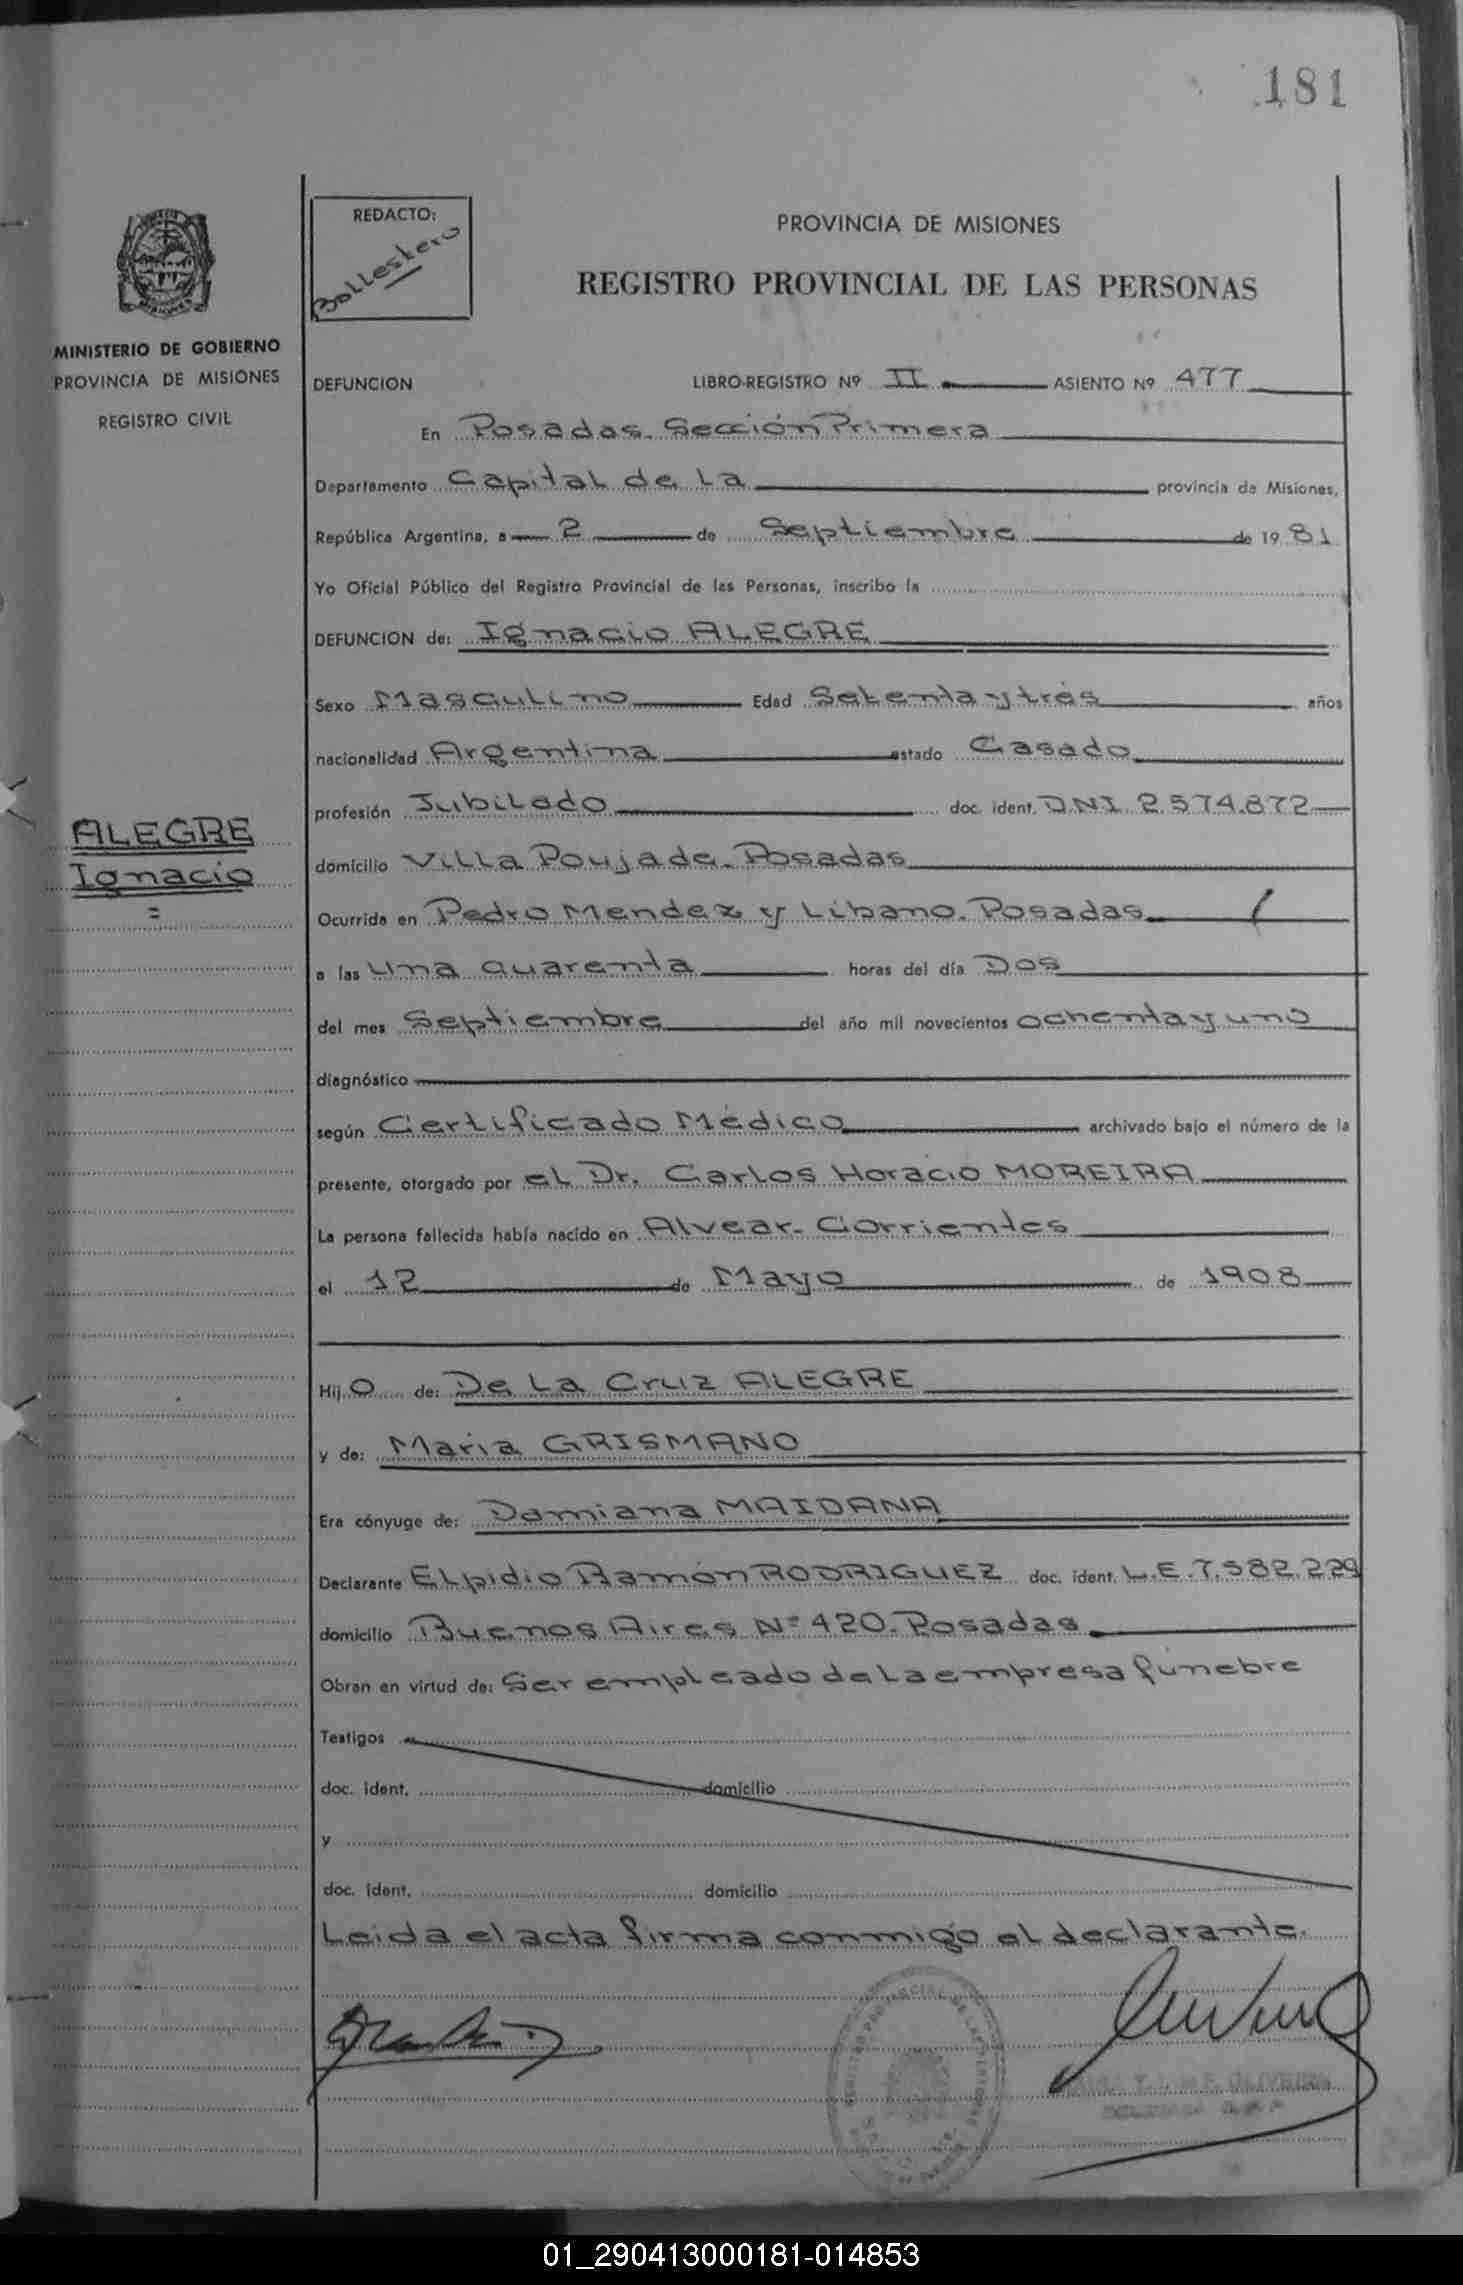 181
REDACTO:
Ballestero
PROVINCIA DE MISIONES
REGISTRO PROVINCIAL DE LAS PERSONAS
MINISTERIO DE GOBIERNO
PROVINCIA DE MISIONES
REGISTRO CIVIL
DEFUNCION LIBRO-REGISTRO Nº II ASIENTO Nº 477
En Posadas. Sección Primera
Departamento Capital de la provincia de Misiones,
República Argentina, a 2 de Septiembre de 1981
Yo Oficial Público del Registro Provincial de las Personas, inscribo la
DEFUNCION de: Ignacio ALEGRE
Sexo Masculino Edad Setenta y trés años
nacionalidad Argentina estado Casado
profesión Jubilado doc. ident. D.N.I. 2.574.872
ALEGRE
Ignacio
domicilio Villa Poujade. Posadas
Ocurrida en Pedro Mendez y Líbano. Posadas
a las Una cuarenta horas del día Dos
del mes Septiembre del año mil novecientos ochenta y uno
diagnóstico
según Certificado Médico archivado bajo el número de la
presente, otorgado por el Dr. Carlos Horacio MOREIRA
La persona fallecida había nacido en Alvear. Corrientes
el 12 de Mayo de 1908
Hijo de: De La Cruz ALEGRE
y de: Maria GRISMANO
Era cónyuge de: Damiana MAIDANA
Declarante Elpidio Ramón RODRIGUEZ doc. ident. L.E. 7.582.229
domicilio Buenos Aires Nº 420. Posadas
Obran en virtud de: Ser empleado de la empresa fúnebre
Testigos
doc. ident. domicilio
y
doc. ident. domicilio
Leida el acta firma conmigo el declarante.
REGISTRO PROVINCIAL DE LAS PERSONAS
OLIVEIRA
01_290413000181-014853